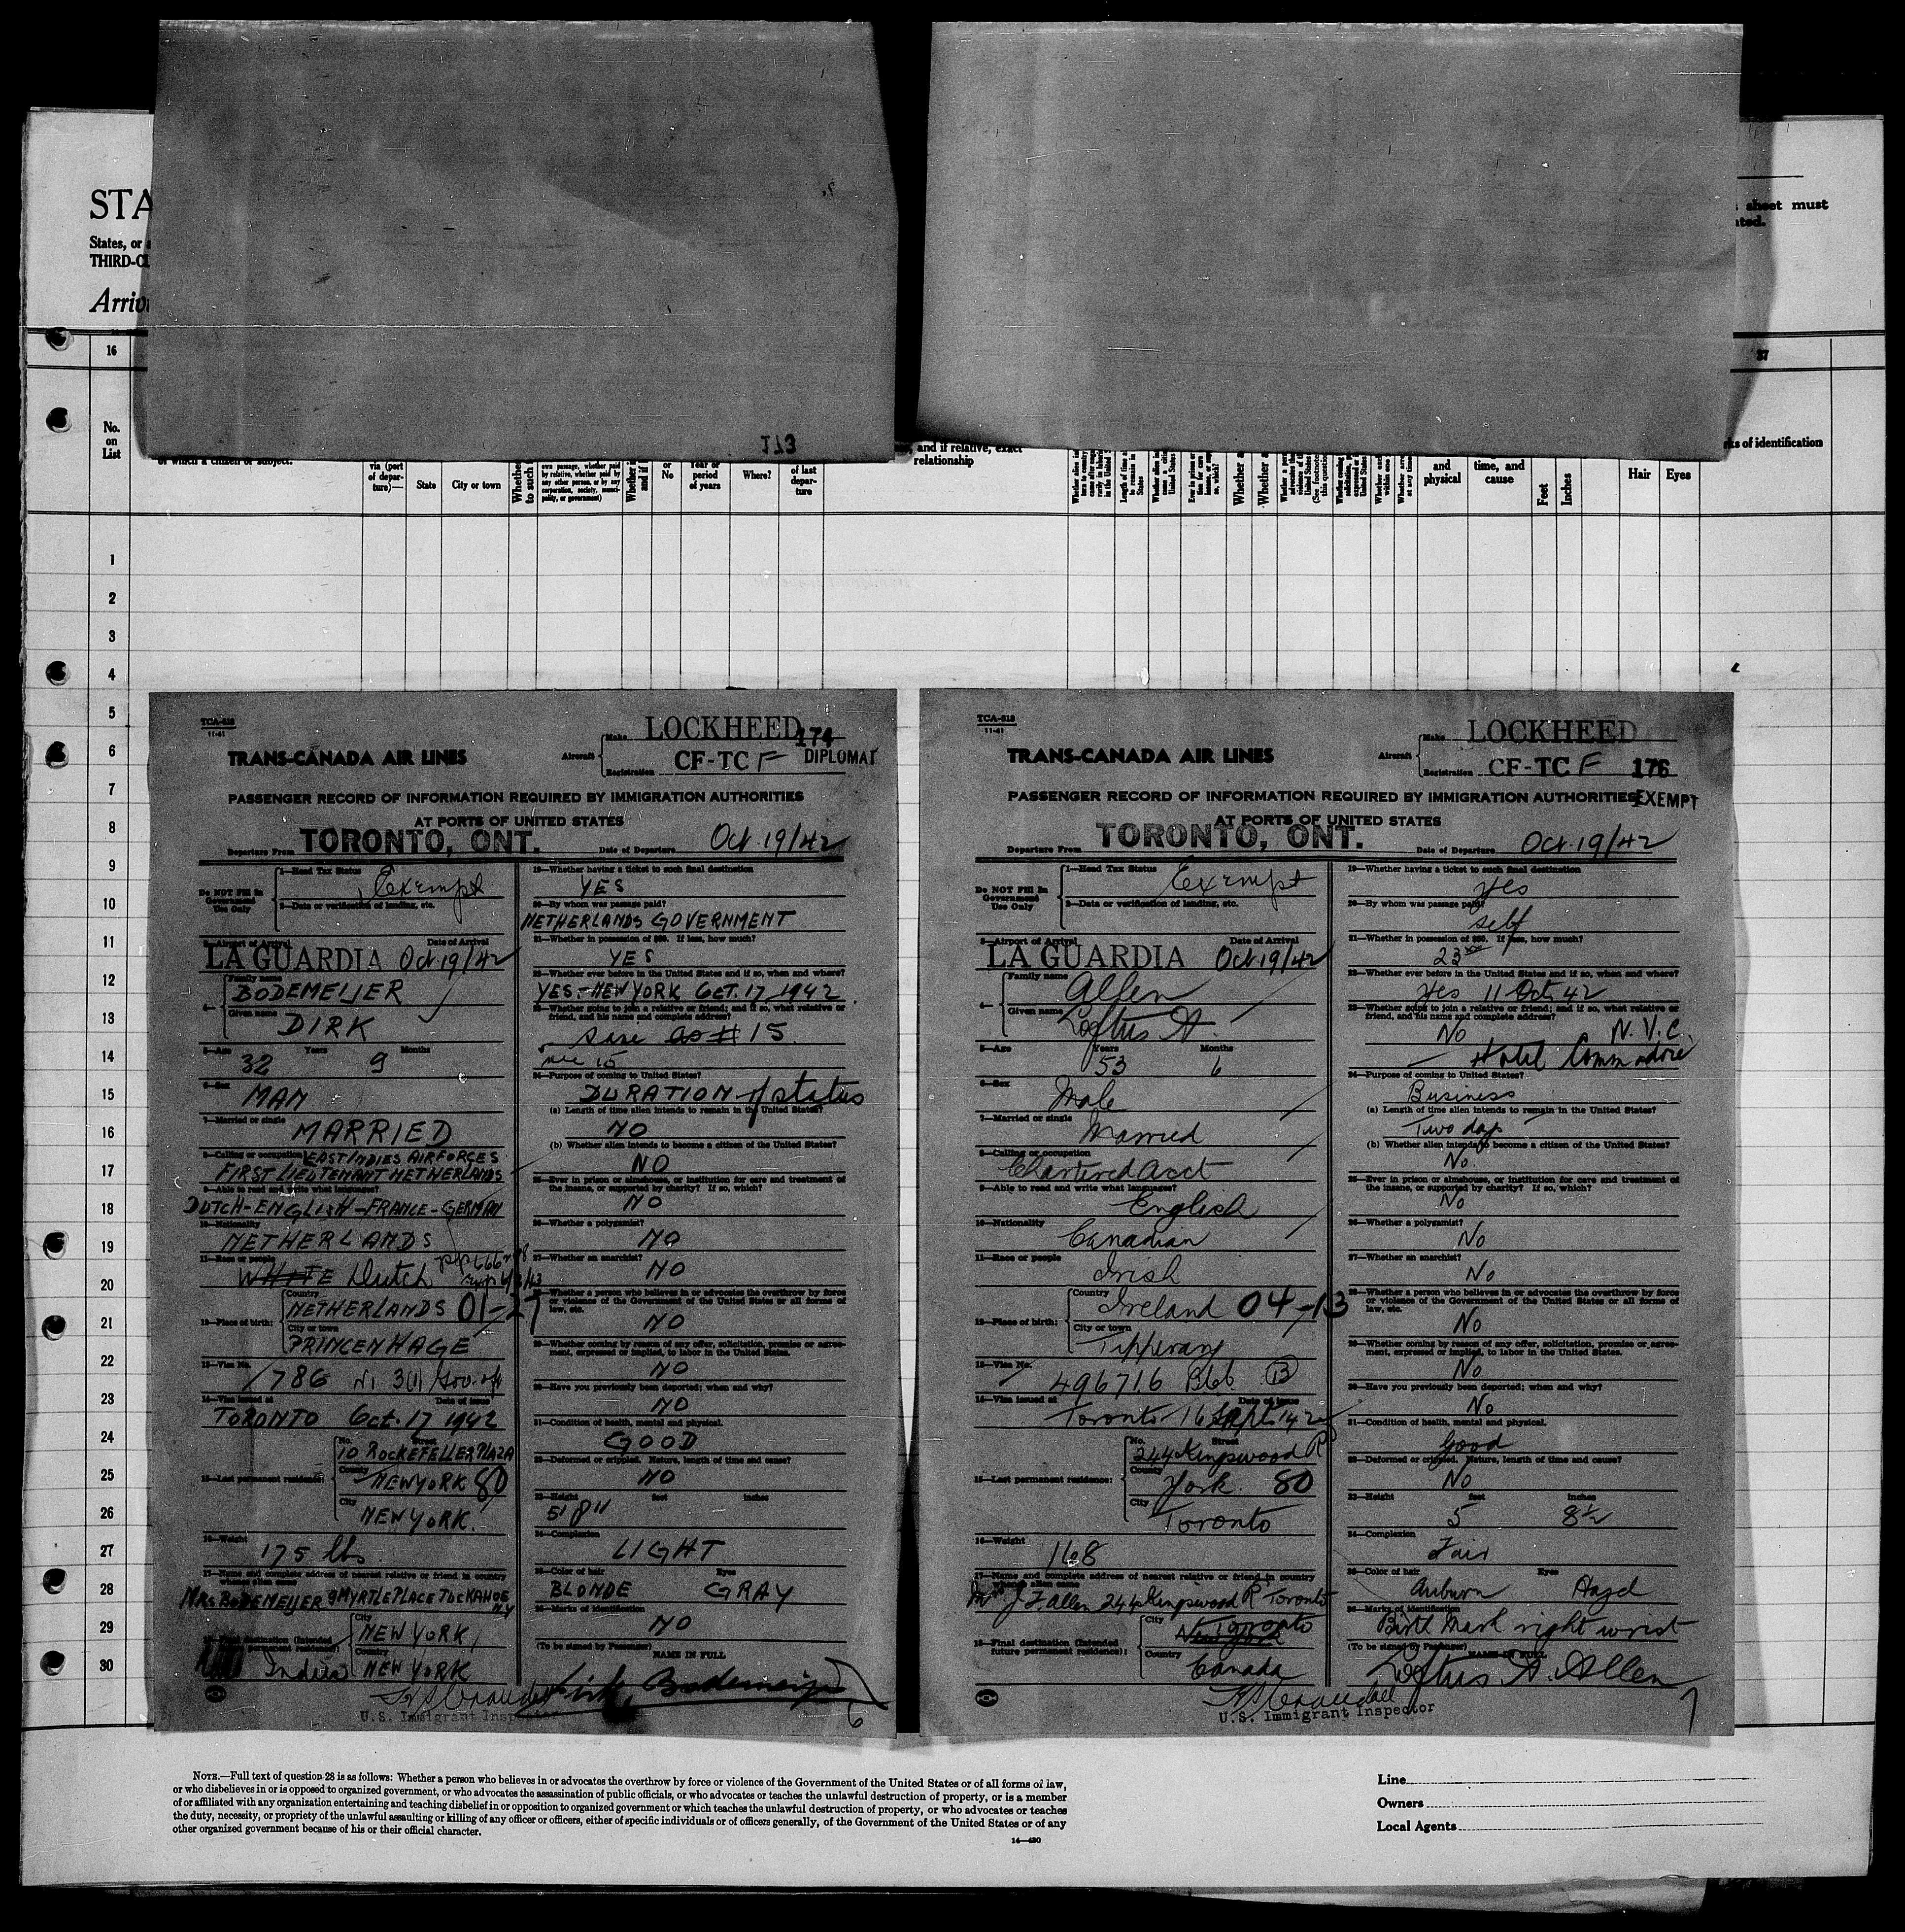 STA
States, or
THIRD-CL
Arriv
sheet must
ated.
16
37
No.
on
List
173
of which a citizen or subject.
via (port
of depar-
ture)—
State
City or town
Whether
to such
own passage, whether paid
by relative, whether paid by
any other person, or by any
corporation, society, munici-
pality, or government)
or
No
Year or
period
of years
Where?
of last
depar-
ture
and if relative, exact
relationship
and
physical
time, and
cause
Feet
Inches
Hair
Eyes
ks of identification
1
2
3
4
5
6
7
8
9
10
11
12
13
14
15
16
17
18
19
20
21
22
23
24
25
26
27
28
29
30
TCA-518
11-41
TRANS-CANADA AIR LINES
Aircraft
Make LOCKHEED 174
Registration CF-TC F DIPLOMAT
PASSENGER RECORD OF INFORMATION REQUIRED BY IMMIGRATION AUTHORITIES
AT PORTS OF UNITED STATES
Departure From TORONTO, ONT. Date of Departure Oct. 19/42
Do NOT Fill In
Government
Use Only
1—Head Tax Status
Exempt
2—Data or verification of landing, etc.
3—Airport of Arrival Date of Arrival
LA GUARDIA Oct 19/42
4— Family name
BODEMEIJER
Given name
DIRK
5—Age Years Months
32 9
6—Sex
MAN
7—Married or single
MARRIED
8—Calling or occupation EAST INDIES AIRFORCES
FIRST LIEUTENANT NETHERLANDS
9—Able to read and write what languages?
DUTCH-ENGLISH-FRANCE-GERMAN
10—Nationality
NETHERLANDS
11—Race or people
WHITE Dutch
12—Place of birth:
Country
NETHERLANDS 01-27
City or town
PRINCENHAGE
13—Visa No.
786 3(1)
14—Visa issued at Date of issue
TORONTO Oct. 17 1942
15—Last permanent residence:
No. Street
10 ROCKEFELLER PLAZA
County
NEW YORK 80
City
NEW YORK.
16—Weight
175 lbs
17—Name and complete address of nearest relative or friend in country
whence alien came
MRS BODEMEIJER 9 MYRTLE PLACE TUCKAHOE
N.Y
18—Final destination (Intended
future permanent residence):
City
NEW YORK
Country
India NEW YORK
19—Whether having a ticket to such final destination
YES
20—By whom was passage paid?
NETHERLANDS GOVERNMENT
21—Whether in possession of $50. If less, how much?
YES
22—Whether ever before in the United States and if so, when and where?
YES.-NEW YORK OCT. 17 1942.
23—Whether going to join a relative or friend; and if so, what relative or
friend, and his name and complete address?
same as # 15
24—Purpose of coming to United States?
DURATION of status
(a) Length of time alien intends to remain in the United States?
NO
(b) Whether alien intends to become a citizen of the United States?
NO
25—Ever in prison or almshouse, or institution for care and treatment of
the insane, or supported by charity? If so, which?
NO
26—Whether a polygamist?
NO
27—Whether an anarchist?
NO
28—Whether a person who believes in or advocates the overthrow by force
or violence of the Government of the United States or all forms of
law, etc.
NO
29—Whether coming by reason of any offer, solicitation, promise or agree-
ment, expressed or implied, to labor in the United States.
NO
30—Have you previously been deported; when and why?
NO
31—Condition of health, mental and physical.
GOOD
32—Deformed or crippled. Nature, length of time and cause?
NO
33—Height feet inches
5' 8"
34—Complexion
LIGHT
35—Color of hair Eyes
BLONDE GRAY
36—Marks of identification
NO
(To be signed by Passenger) NAME IN FULL
Dirk Bodemeijer
U.S. Immigrant Inspector
6
TCA-518
11-41
TRANS-CANADA AIR LINES
Aircraft
Make LOCKHEED
Registration CF-TC F 176
PASSENGER RECORD OF INFORMATION REQUIRED BY IMMIGRATION AUTHORITIES EXEMPT
AT PORTS OF UNITED STATES
Departure From TORONTO, ONT. Date of Departure Oct. 19/42
Do NOT Fill In
Government
Use Only
1—Head Tax Status
Exempt
2—Data or verification of landing, etc.
3—Airport of Arrival Date of Arrival
LA GUARDIA Oct 19/42
4— Family name
Allen
Given name
Loftus A.
5—Age Years Months
53 6
6—Sex
Male
7—Married or single
Married
8—Calling or occupation
Chartered Acct
9—Able to read and write what languages?
English
10—Nationality
Canadian
11—Race or people
Irish
12—Place of birth:
Country
Ireland 04-13
City or town
Tipperary
13—Visa No.
496716 B
14—Visa issued at Date of issue
Toronto 16 Sept. 142
15—Last permanent residence:
No. Street
244 Kingswood Rd
County
York 80
City
Toronto
16—Weight
168
17—Name and complete address of nearest relative or friend in country
whence alien came
J F. Allen 244 Kingswood Rd Toronto
18—Final destination (Intended
future permanent residence):
City
Toronto
New York
Country
Canada
19—Whether having a ticket to such final destination
yes
20—By whom was passage paid?
self
21—Whether in possession of $50. If less, how much?
23
22—Whether ever before in the United States and if so, when and where?
yes 11 Oct 42
23—Whether going to join a relative or friend; and if so, what relative or
friend, and his name and complete address?
No N.Y.C
Hotel Commodore
24—Purpose of coming to United States?
Business
(a) Length of time alien intends to remain in the United States?
Two days
(b) Whether alien intends to become a citizen of the United States?
No
25—Ever in prison or almshouse, or institution for care and treatment of
the insane, or supported by charity? If so, which?
No
26—Whether a polygamist?
No
27—Whether an anarchist?
No
28—Whether a person who believes in or advocates the overthrow by force
or violence of the Government of the United States or all forms of
law, etc.
No
29—Whether coming by reason of any offer, solicitation, promise or agree-
ment, expressed or implied, to labor in the United States.
No
30—Have you previously been deported; when and why?
No
31—Condition of health, mental and physical.
Good
32—Deformed or crippled. Nature, length of time and cause?
No
33—Height feet inches
5 8½
34—Complexion
Fair
35—Color of hair Eyes
Auburn Hazel
36—Marks of identification
Birth Mark right wrist
(To be signed by Passenger) NAME IN FULL
Loftus A. Allen
U.S. Immigrant Inspector
7
NOTE.—Full text of question 28 is as follows: Whether a person who believes in or advocates the overthrow by force or violence of the Government of the United States or of all forms of law,
or who disbelieves in or is opposed to organized government, or who advocates the assassination of public officials, or who advocates or teaches the unlawful destruction of property, or is a member
of or affiliated with any organization entertaining and teaching disbelief in or opposition to organized government or which teaches the unlawful destruction of property, or who advocates or teaches
the duty, necessity, or propriety of the unlawful assaulting or killing of any officer or officers, either of specific individuals or of officers generally, of the Government of the United States or of any
other organized government because of his or their official character.
14—430
Line
Owners
Local Agents